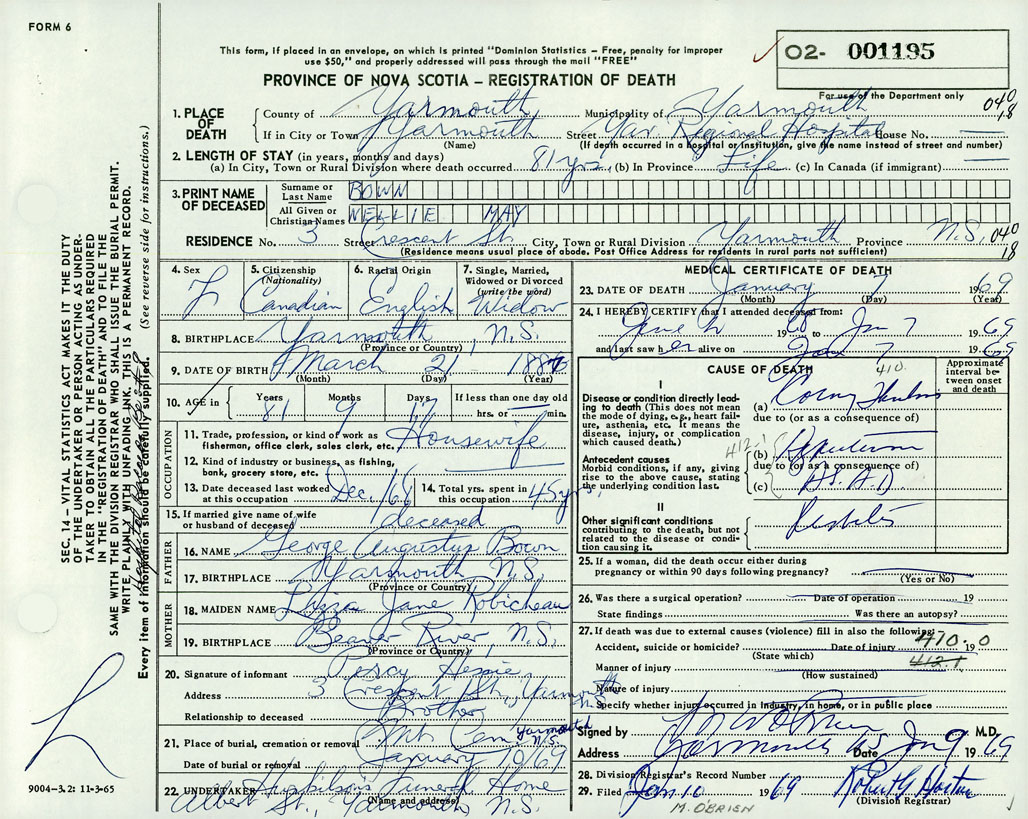 FORM 6
This form, if placed in an envelope, on which is printed "Dominion Statistics – Free, penalty for improper
use $50," and properly addressed will pass through the mail "FREE"
O2- 001195
PROVINCE OF NOVA SCOTIA – REGISTRATION OF DEATH
For use of the Department only
040
18
1. PLACE OF DEATH
County of Yarmouth Municipality of Yarmouth
If in City or Town Yarmouth Street Yar. Regional Hospital House No. —
(Name) (If death occurred in a hospital or institution, give the name instead of street and number)
2. LENGTH OF STAY (in years, months and days)
(a) In City, Town or Rural Division where death occurred 81 yrs. (b) In Province Life (c) In Canada (if immigrant) —
3. PRINT NAME OF DECEASED
Surname or Last Name BOWN
All Given or Christian Names NELLIE MAY
RESIDENCE No. 3 Street Crescent St. City, Town or Rural Division Yarmouth Province N.S. 040
18
(Residence means usual place of abode. Post Office Address for residents in rural parts not sufficient)
4. Sex F
5. Citizenship (Nationality) Canadian
6. Racial Origin English
7. Single, Married, Widowed or Divorced (write the word) Widow
8. BIRTHPLACE Yarmouth, N.S.
(Province or Country)
9. DATE OF BIRTH March 21 1887
(Month) (Day) (Year)
10. AGE in Years 81 Months 9 Days 17 If less than one day old hrs. or min.
OCCUPATION
11. Trade, profession, or kind of work as fisherman, office clerk, sales clerk, etc. Housewife
12. Kind of industry or business, as fishing, bank, grocery store, etc. —
13. Date deceased last worked at this occupation Dec./68
14. Total yrs. spent in this occupation 45 yrs.
15. If married give name of wife or husband of deceased deceased
FATHER
16. NAME George Augustus Bown
17. BIRTHPLACE Yarmouth N.S.
(Province or Country)
MOTHER
18. MAIDEN NAME Lizza Jane Robicheau
19. BIRTHPLACE Beaver River, N.S.
(Province or Country)
20. Signature of informant Percy
Address 3 Crescent St., Yarmouth N.S.
Relationship to deceased Brother
21. Place of burial, cremation or removal Mt. Cem Yarmouth N.S.
Date of burial or removal January 10/69
22. UNDERTAKER Funeral Home
Albert St., Yarmouth, N.S.
(Name and address)
MEDICAL CERTIFICATE OF DEATH
23. DATE OF DEATH January 7 1969
(Month) (Day) (Year)
24. I HEREBY CERTIFY that I attended deceased from:
June 1960 to Jan 7 1969
and last saw her alive on Jan 7 1969
CAUSE OF DEATH 410.
Approximate interval between onset and death
I
Disease or condition directly leading to death (This does not mean the mode of dying, e.g., heart failure, asthenia, etc. It means the disease, injury, or complication which caused death.)
(a)
due to (or as a consequence of)
Antecedent causes
Morbid conditions, if any, giving rise to the above cause, stating the underlying condition last.
(b)
due to (or as a consequence of)
(c) A.S.H.D
II
Other significant conditions contributing to the death, but not related to the disease or condition causing it.
25. If a woman, did the death occur either during pregnancy or within 90 days following pregnancy? —
(Yes or No)
26. Was there a surgical operation? Date of operation 19
State findings Was there an autopsy?
27. If death was due to external causes (violence) fill in also the following:
Accident, suicide or homicide? Date of injury 19
(State which)
410.0
412.1
Manner of injury
(How sustained)
Nature of injury
Specify whether injury occurred in industry, in home, or in public place
Signed by M.D.
Address Yarmouth N.S. Date Jan 9 1969
28. Division Registrar's Record Number
29. Filed Jan 10 1969 Robert G
(Division Registrar)
M. O'BRIEN
9004–3.2: 11-3-65
SEC. 14 – VITAL STATISTICS ACT MAKES IT THE DUTY
OF THE UNDERTAKER OR PERSON ACTING AS UNDER-
TAKER TO OBTAIN ALL THE PARTICULARS REQUIRED
IN THE "REGISTRATION OF DEATH" AND TO FILE THE
SAME WITH THE DIVISION REGISTRAR WHO SHALL ISSUE THE BURIAL PERMIT.
WRITE PLAINLY WITH UNFADING INK. THIS IS A PERMANENT RECORD.
Every item of information should be carefully supplied. (See reverse side for instructions.)